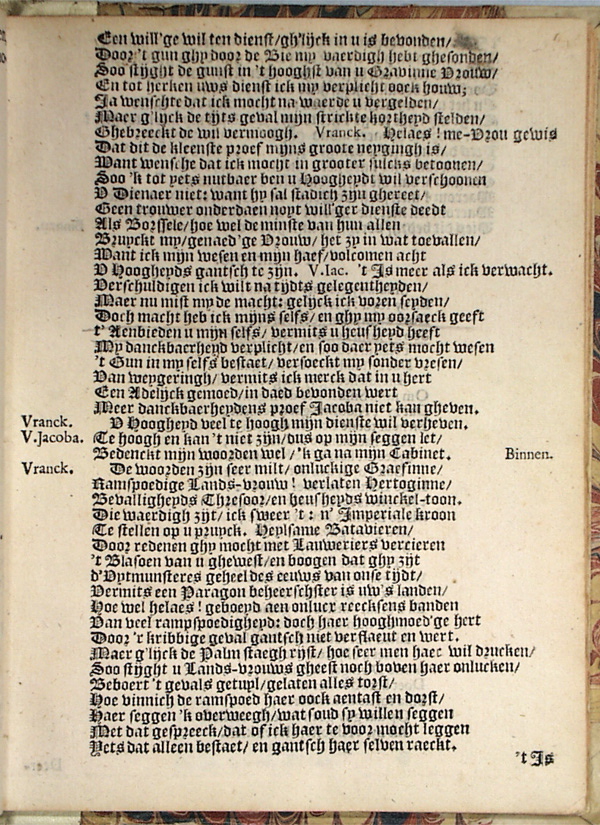 Een will'ge wil ten dienst/gh'lijck in u is bevonden/
Door 't gun ghy door de Bie my vaerdigh hebt ghesonden/
Soo stijght de gunst in 't hooghst van u Gravinne Vrouw/
En tot herken uws dienst ick my verplicht oock houw;
Ja wenschte dat ick mocht na waerde u vergelden/
Maer g'lijck de tijts geval mijn strickte kortheyd stelden/
Ghebreeckt de wil vermoogh. Vranck. Helaes! me-Vrou gewis
Dat dit de kleenste proef mijns groote neygingh is/
Want wensche dat ick mocht in grooter sulcks betoonen/
Soo 'k tot yets nutbaer ben u Hoogheydt wil verschoonen
V Dienaer niet: want hy sal stadich zijn ghereet/
Geen trouwer onderdaen noyt will'ger dienste deedt
Als Borssele/hoe wel de minste van hun allen
Bruyckt my/genaed'ge Vrouw/het zy in wat toevallen/
Want ick mijn wesen en mijn haef/volcomen acht
V Hoogheyds gantsch te zijn. V.Iac. 't Is meer als ick verwacht.
Verschuldigen ick wilt na tijdts gelegentheyden/
Maer nu mist my de macht: gelijck ick vozen seyden/
Doch macht heb ick mijns selfs/en ghy my oorsaeck geeft
t' Aenbieden u mijn selfs/vermits u heusheyd heeft
My danckbaerheyd verplicht/en soo daer yets mocht wesen
't Gun in my selfs bestaet/versoeckt my sonder vresen/
Van weygeringh/vermits ick merck dat in u hert
Een Adelijck gemoed/in daed bevonden wert
Meer danckbaerheydens proef Jacoba niet kan gheven.
Vranck. V Hoogheyd veel te hoogh mijn dienste wil verheven.
V.Jacoba. Te hoogh en kan 't niet zijn/dus op mijn seggen let/
Bedenckt mijn woorden wel/'k ga na mijn Cabinet. Binnen.
Vranck. De woorden zijn seer milt/onluckige Graefinne/
Ramspoedige Lands-vrouw! verlaten Hertoginne/
Bevalligheyds Thresoor/en heusheyds winckel-toon.
Die waerdigh zijt/ick sweer 't: n' Imperiale kroon
Te stellen op u pruyck. Heylsame Batavieren/
Door redenen ghy mocht met Lauweriers vercieren
't Blasoen van u ghewest/en boogen dat ghy zijt
d'Vytmunsteres geheel des eeuws van onse tijdt/
Vermits een Paragon beheerschster is uw's landen/
Hoe wel helaes! geboeyd aen onlucx reecksens banden
Van veel rampspoedigheyd: doch haer hooghmoed'ge hert
Door 'r kribbige geval gantsch niet verflaeut en wert.
Maer g'lijck de Palm staegh rijst/hoe seer men haer wil drucken/
Soo stijght u Lands-vrouws gheest noch boven haer onlucken/
Beboert 't gevals getupl/gelaten alles torst/
Hoe vinnich de ramspoed haer oock aentast en dorst/
Haer seggen 'k overweegh/wat soud sy willen seggen
Met dat gespreeck/dat of ick haer te voor mocht leggen
Yets dat alleen bestaet/en gantsch haer selven raeckt.
't Is